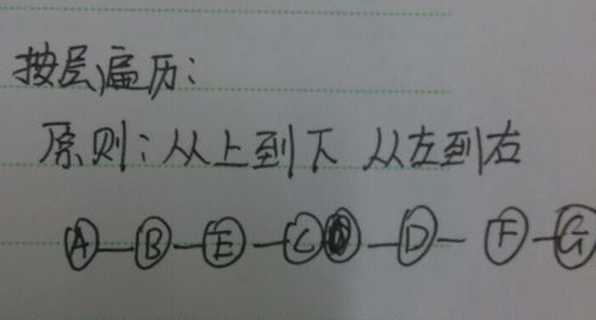 按层遍历:
原则:从上到下 从左到右
A—B—E—C—D—F—G